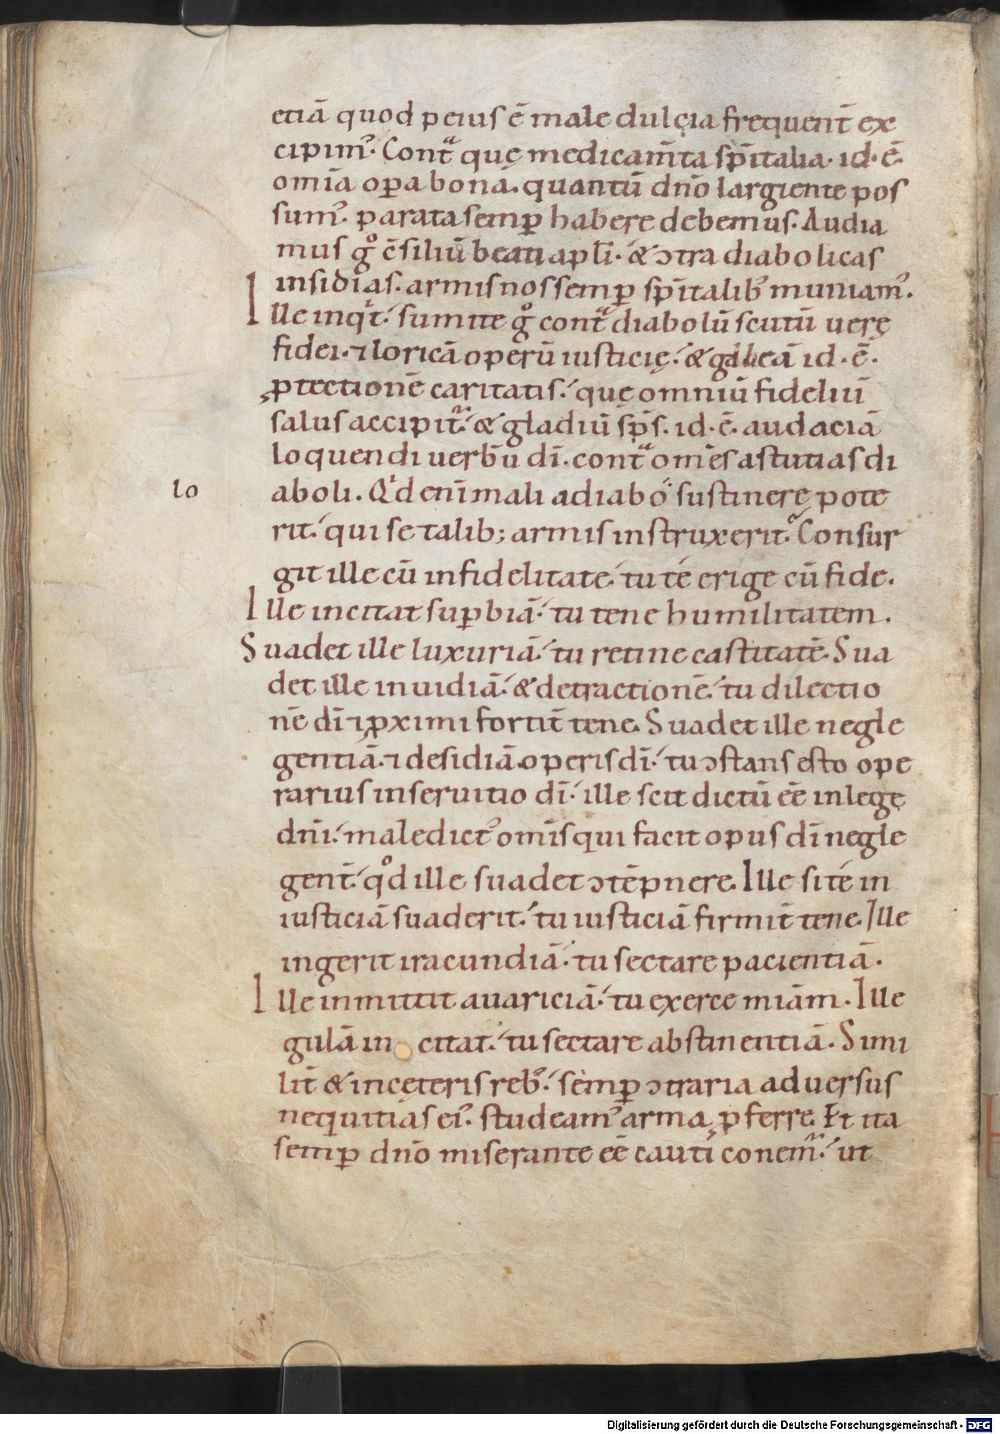 etiā quod peius ē male dulcia frequent̄ ex
cipimꝰ. Cont̾ quę medicam̄ta sp̄italia. id. ē.
om̄ia oꝑa bona. quantū dn̄o largiente pos
sumꝰ. parata semꝑ habere debemus. Audia
mus gͦ ↄ̄siliū beati apl̄i. & ↄtra diabolicas
insidias. armis nos semꝑ sp̄italibꝰ muniamꝰ.
Ille inqͥt. sumite gͦ contᷓ diabolū scutū verę
fidei. ⁊ loricā operū iusticię. & galeā id. ē.
ꝓtectionē caritatis. quę omniū fideliū
salus accipitᷣ. & gladiū sp̄s. id. ē. audaciā
loquendi verbū dī. contᷓ om̄es astutias di
lo
aboli. Qͥd enī mali a diabo sustinere pote
rit. qui se talib; armis instruxerit. Consur
git ille cū infidelitate. tu te erige cū fide.
Ille incitat suꝑbiā. tu tene humilitatem.
Suadet ille luxuriā. tu retine castitatē. Sua
det ille invidiā. & detractionē. tu dilectio
nē dī ⁊ ꝓximi fortit̄ tene. Suadet ille negle
gentiā. ⁊ desidiā operis dī. tu ↄstans esto ope
rarius in servitio dī. ille scit dictū eē in lege
dn̄i. maledictꝰ omīs qui facit opus dī negle
gent̄. qͦd ille suadet ↄtēpnere. Ille si te in
iusticiā suaderit. tu iusticiā firmit̄ tene. Ille
ingerit iracundiā. tu sectare pacientiā.
Ille inmittit avariciā. tu exerce miām. Ille
gulā in citat. tu sectare abstinentiā. Simi
lit̄ & in cęteris rebꝰ. semꝑ ↄtraria adversus
nequitias eiꝰ. studeamꝰ arma ꝓferre. Et ita
semꝑ dn̄o miserante eē cauti conemᷣ. ut
Digitalisierung gefördert durch die Deutsche Forschungsgemeinschaft - DFG